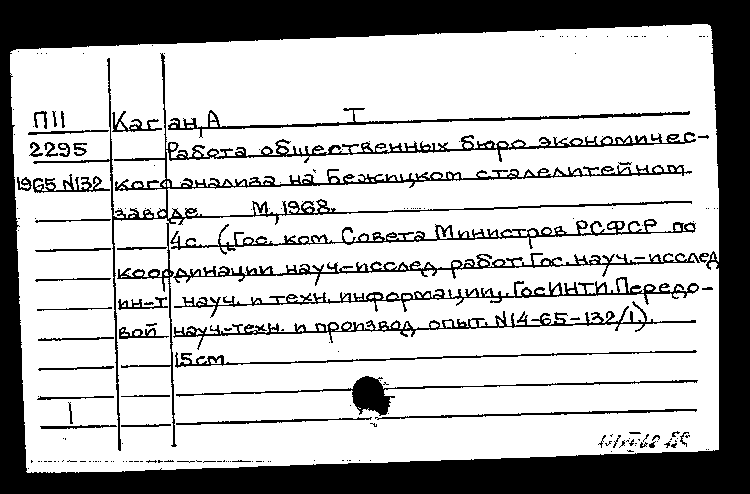 П11 Каган, А I
2295 Работа общественных бюро экономичес-
1965 N132 кого анализа на Бежицком сталелитейном
заводе. М, 1968.
4с. (Гос. ком. Совета Министров РСФСР по
координации науч.-исслед. работ. Гос. науч.-исслед
ин-т науч. и техн. информации. ГосИНТИ. Передо-
вой науч.-техн. и производ. опыт. N14-65-132/1).
15см.
1